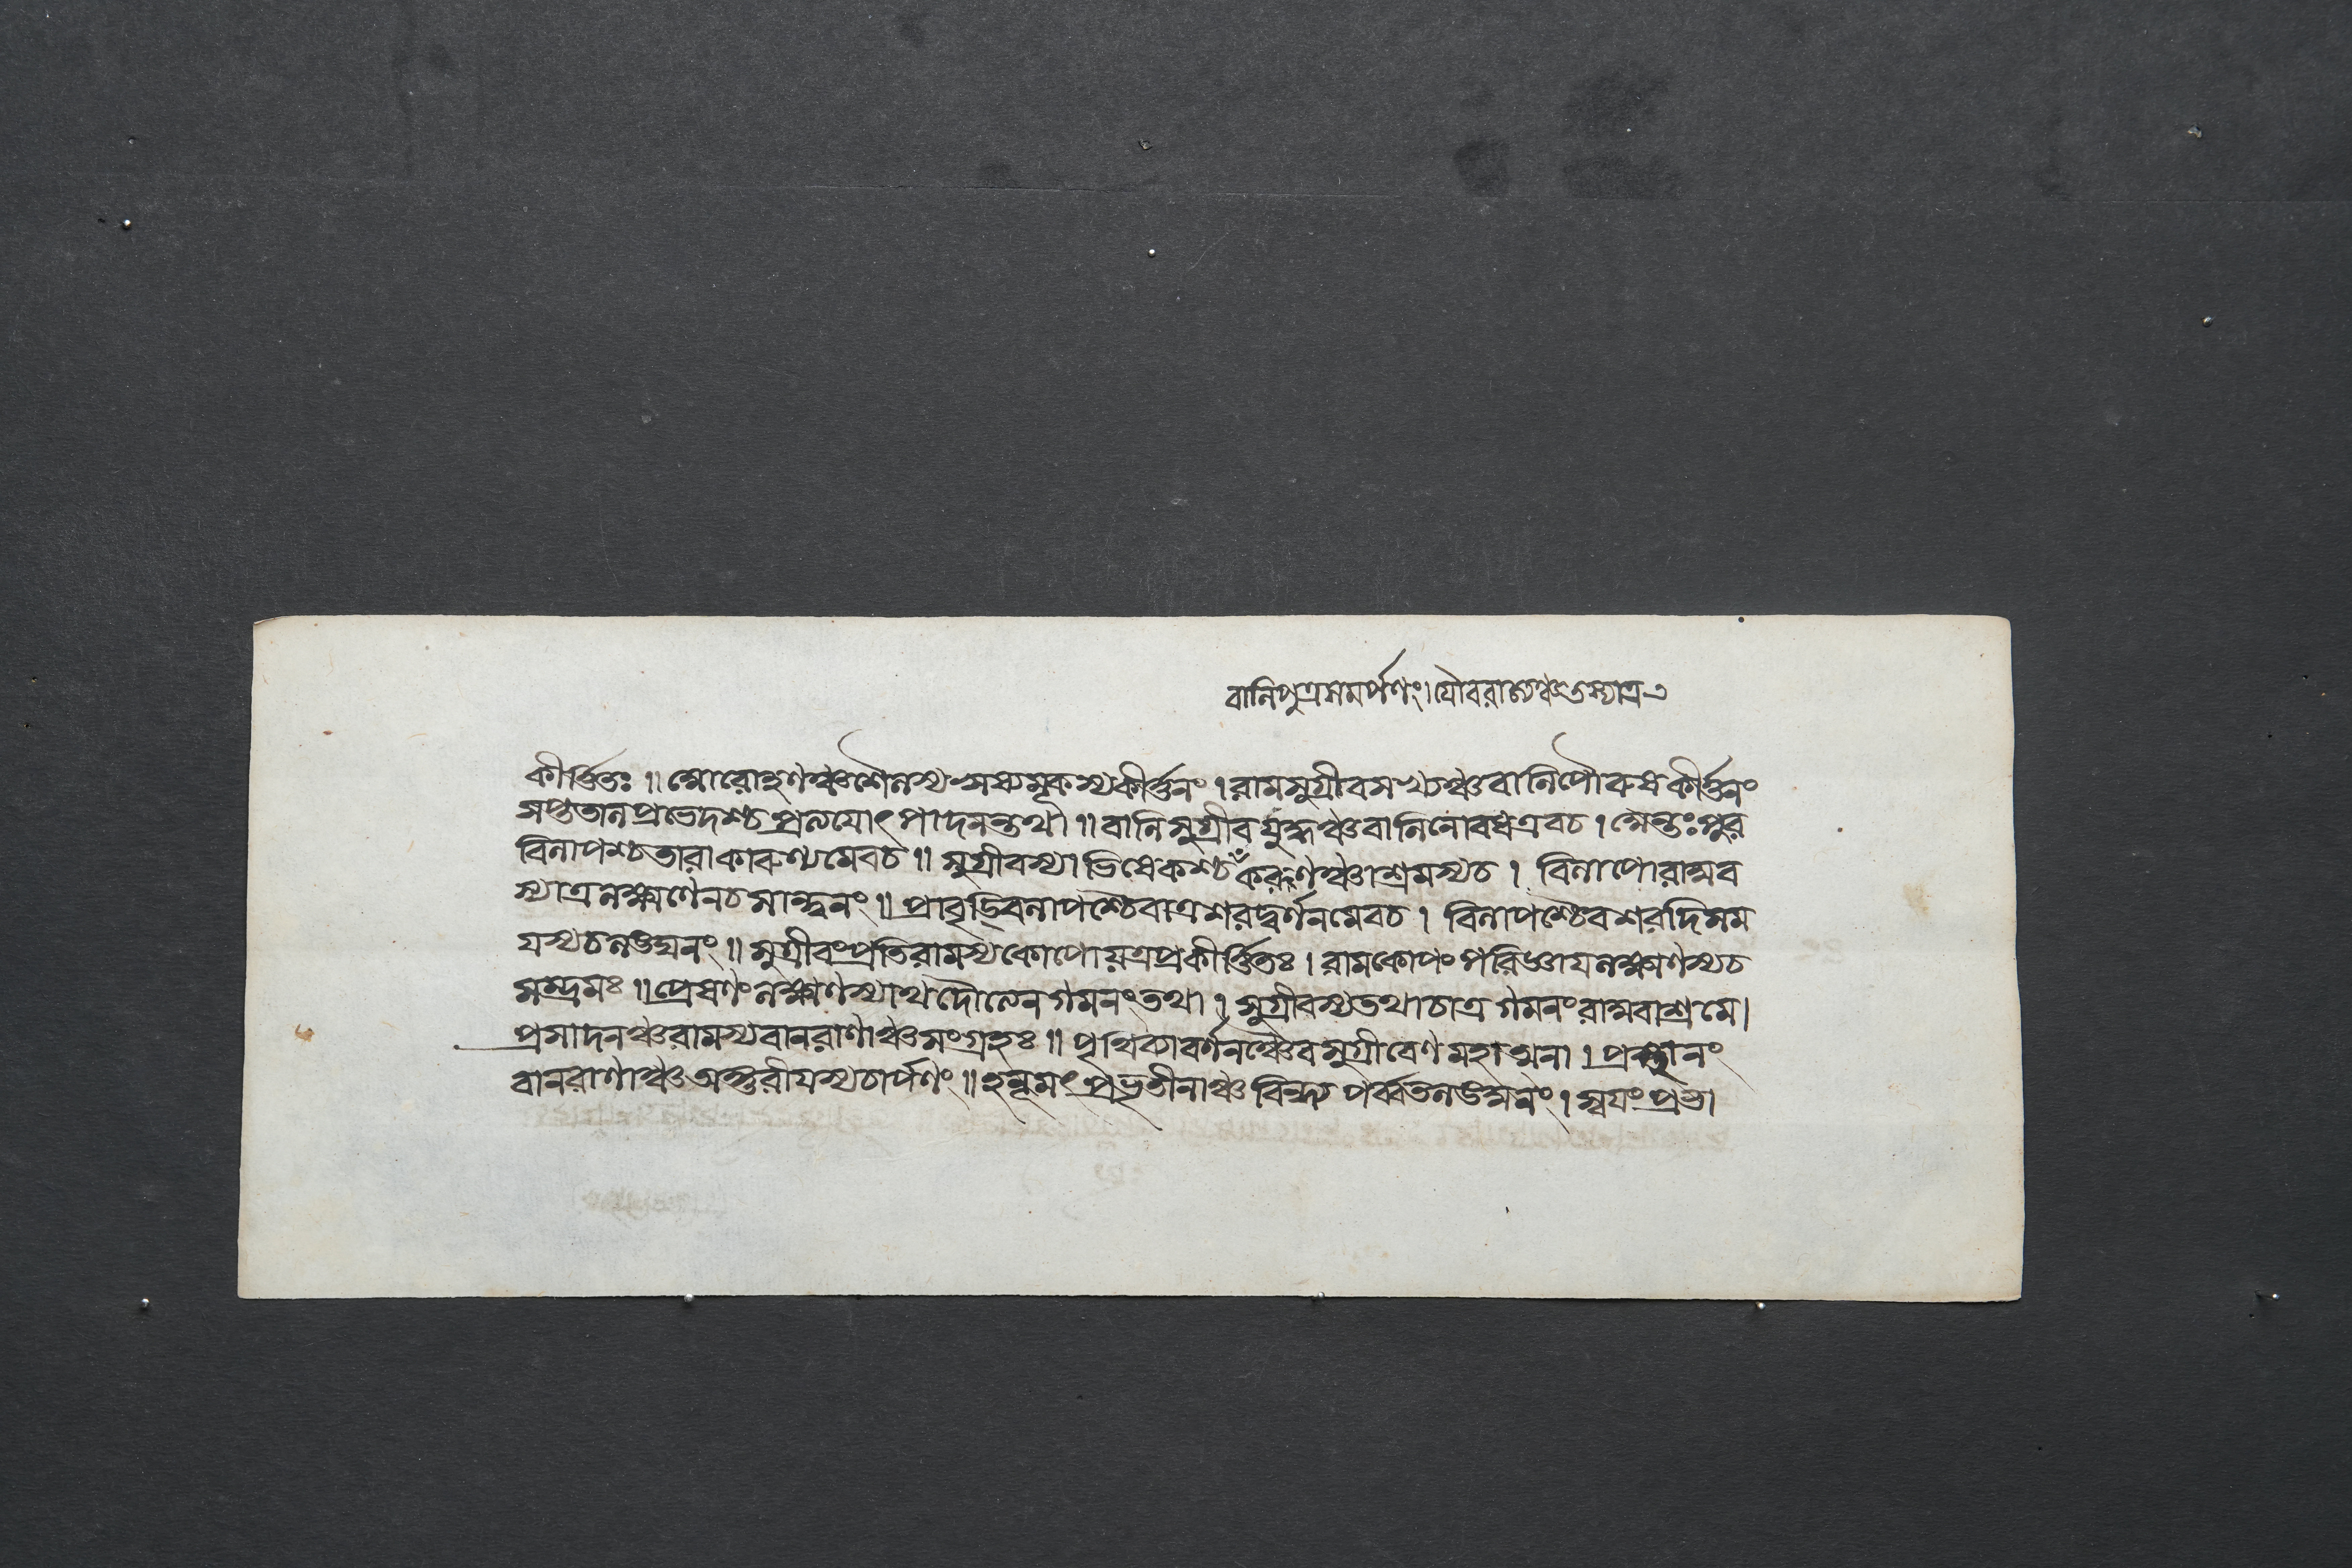 বালিপুত্রসমর্পণং।যৌবরাজ্যঞ্চতস্যাত্র
কীর্ত্তিতঃ॥আরোহণঞ্চশৈলস্যঋষ্যমূকস্যকীর্ত্তনং।রামসুগ্রীবসখ্যঞ্চবালিপৌরুষকীর্ত্তনং
সপ্ততালপ্রভেদশ্চপ্রত্যয়োৎপাদনন্তথা॥বালিসুগ্রীবযুদ্ধঞ্চবালিনোবধএবচ।অন্তঃপুর
বিলাপশ্চতারাকারুণ্যমেবচ॥সুগ্রীবস্যাভিষেকশ্চকরণঞ্চাশ্রমস্যচ।বিলাপোরাঘব
স্যাত্রলক্ষ্মণেনচসান্ত্বনং॥প্রাবৃড্বিলাপশ্চৈবাত্রশরদ্বর্ণনমেবচ।বিলাপশ্চৈবশরদিসম
যস্যচলঙ্ঘনং॥সুগ্রীবংপ্রতিরামস্যকোপোযত্রপ্রকীর্ত্তিতঃ।রামকোপংপরিজ্ঞাযলক্ষ্মণস্যচ
সম্ভ্রমঃ॥প্রেষণংলক্ষ্মণস্যাথদৌত্যেনগমনংতথা।সুগ্রীবস্যতথাচাত্রগমনংরাঘবাশ্রমে।
প্রসাদনঞ্চরামস্যবানরাণাঞ্চসংগ্রহঃ॥পৃথিব্যাবর্ণনঞ্চৈবসুগ্রীবেণমহাত্মনা।প্রস্থানং
বানরাণাঞ্চঅঙ্গুরীযস্যচার্পণং॥হনূমৎপ্রভৃতীনাঞ্চবিন্ধ্যপর্ব্বতলঙ্ঘনং।স্বযংপ্রভা